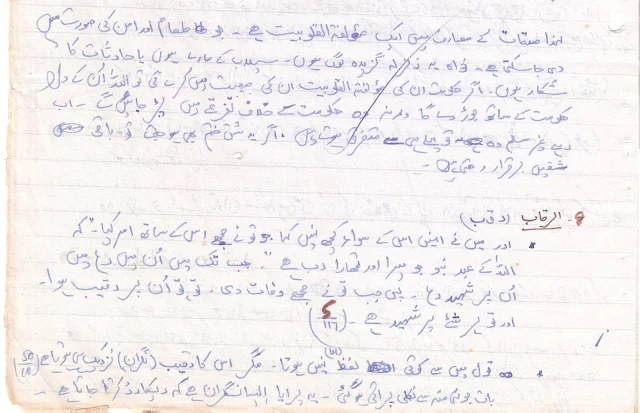 لہٰذا صدقات کے مصارف میں ایک مؤلفۃ القلوبیت ہے۔ جو طعام اور امن کی صورت میں
دی جا سکتی ہے۔ خواہ یہ زلزلہ گزیدہ لوگ ہوں۔ سیلاب کے مارے ہوں یا حادثات کا
شکار ہوں۔ اگر حکومت ان کی مؤلفۃ القلوبیت ان کی معیت میں کرے گی تو اللہ ان کے دل
حکومت کے ساتھ جوڑ دے گا ورنہ وہ حکومت کے خلاف تفرقے میں پڑ جائیں گے۔ اب
رہے غیر مسلم وہ تو پہلے ہی متفرق ہوتے ہیں۔ اگر یہ شق ختم بھی ہو جائے تو باقی
شقیں برقرار رہتی ہیں۔
8۔ الرقاب (رقب)
اور میں نے انہیں اس کے سواء کچھ نہیں کہا جو تو نے مجھے اس کے ساتھ امر کیا۔ "کہ
اللہ کے عبد بنو جو میرا اور تمہارا رب ہے"۔ جب تک میں اُن میں رہا میں
اُن پر شہید رہا۔ پس جب تو نے مجھے وفات دی۔ تو تُو اُن پر رقیب ہوا۔
اور تو ہر شئے پر شہید ہے۔ (5/117)
قول میں سے کوئی لفظ نہیں ہوتا۔ مگر اس کا رقیب (نگران) نزدیک ہی ہوتا ہے (50/18)
بات جونہی منہ سے نکلی پرائی ہو گئی۔ یہ پرایا ایسا نگران ہے کہ ریکارڈ کرتا جاتا ہے۔